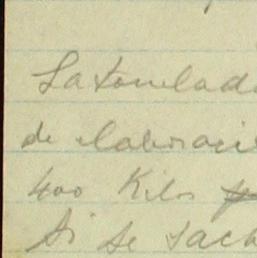 La tonelada
de elaboraci
400 Kilos
Si se sach